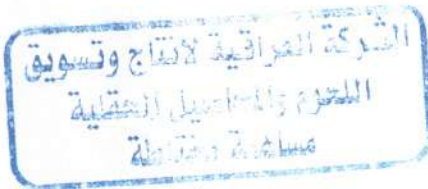 الشركة العراقية لانتاج وتسويق
اللحوم والمحاصيل الحقلية
مساهمة مختلطة